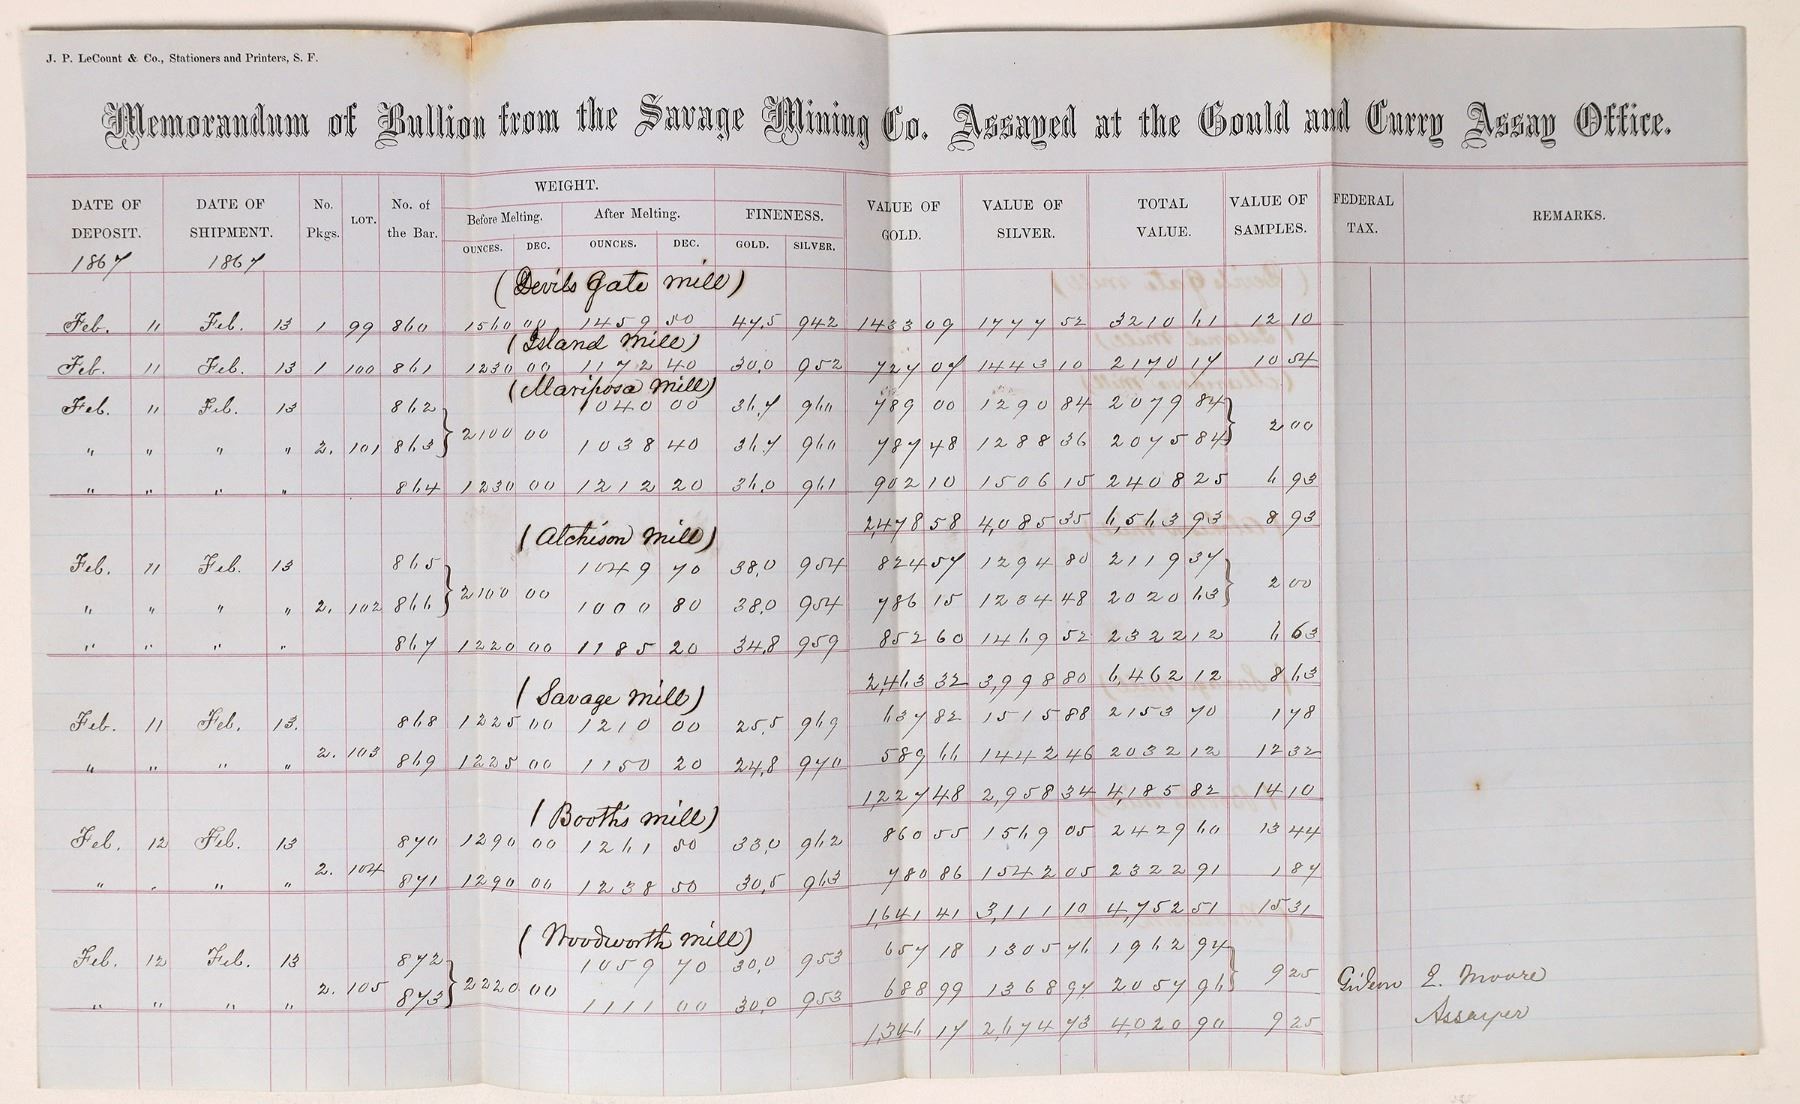 J. P. LeCount & Co., Stationers and Printers, S. F.
Memorandum of Bullion from the Savage Mining Co. Assayed at the Gould and Curry Assay Office.
DATE OF DEPOSIT. DATE OF SHIPMENT. No. Pkgs. LOT. No. of the Bar. WEIGHT. Before Melting. After Melting. FINENESS. VALUE OF GOLD. VALUE OF SILVER. TOTAL VALUE. VALUE OF SAMPLES. FEDERAL TAX. REMARKS.
OUNCES. DEC. OUNCES. DEC. GOLD. SILVER.
1867 1867
(Devils Gate Mill)
Feb. 11 Feb. 13 1 99 860 1560 00 1459 50 47.5 942 1433 09 1777 52 3210 61 12 10
(Island Mill)
Feb. 11 Feb. 13 1 100 861 1230 00 1172 40 30.0 952 727 07 1443 10 2170 17 10 54
(Mariposa Mill)
Feb. 11 Feb. 13 862 1040 00 36.7 960 789 00 1290 84 2079 84
" " " " 2. 101 863 } 2100 00 1038 40 36.7 960 787 48 1288 36 2075 84 } 2 00
" " " " 864 1230 00 1212 20 36.0 961 902 10 1506 15 2408 25 6 93
2,478 58 4,085 35 6,563 93 8 93
(Atchison Mill)
Feb. 11 Feb. 13 865 1049 70 38.0 954 824 57 1294 80 2119 37
" " " " 2. 102 866 } 2100 00 1000 80 38.0 954 786 15 1234 48 2020 63 } 2 00
" " " " 867 1220 00 1185 20 34.8 959 852 60 1469 52 2322 12 6 63
2,463 32 3,998 80 6,462 12 8 63
(Savage Mill)
Feb. 11 Feb. 13. 868 1225 00 1210 00 25.5 969 637 82 1515 88 2153 70 1 78
" " " " 2. 103 869 1225 00 1150 20 24.8 970 589 66 1442 46 2032 12 12 32
1,227 48 2,958 34 4,185 82 14 10
(Booth's Mill)
Feb. 12 Feb. 13 870 1290 00 1261 50 33.0 962 860 55 1569 05 2429 60 13 44
" " " " 2. 104 871 1290 00 1238 50 30.5 963 780 86 1542 05 2322 91 1 87
1641 41 3,111 10 4,752 51 15 31
(Woodworth Mill)
Feb. 12 Feb. 13 872 1059 70 30.0 953 657 18 1305 76 1962 94
" " " " 2. 105 873 } 2220 00 1111 00 30.0 953 688 99 1368 97 2057 96 } 9 25 Gideon E. Moore
1,346 17 2,674 73 4,020 90 9 25 Assayer